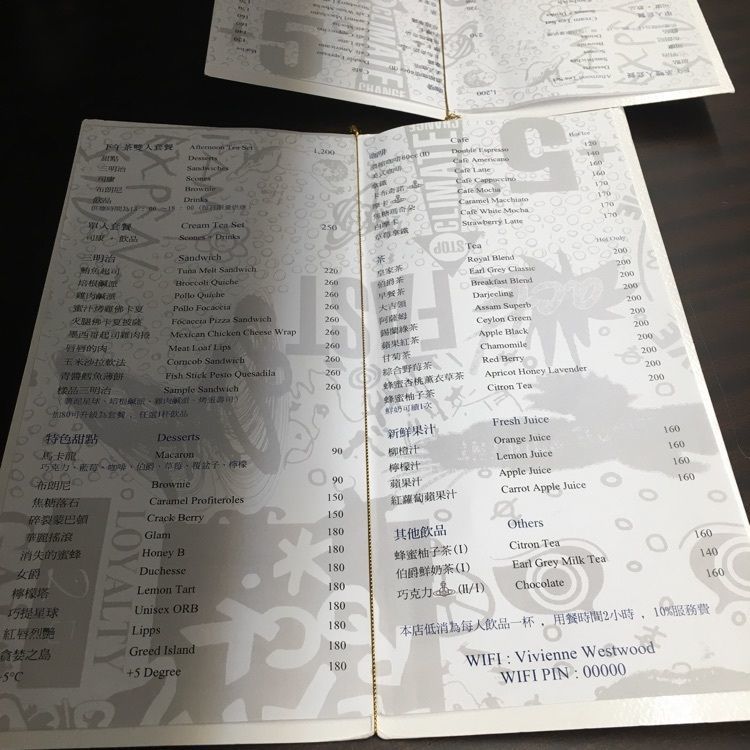 下午茶雙人套餐 Afternoon Tea Set 1,200
甜點 Desserts
三明治 Sandwiches
司康 Scones
布朗尼 Brownie
飲品 Drinks
單人套餐 Cream Tea Set 250
司康 + 飲品 Scones + Drinks
三明治 Sandwich
鮪魚起司 Tuna Melt Sandwich 220
培根鹹派 Broccoli Quiche 260
雞肉鹹派 Pollo Quiche 260
蜜汁烤雞佛卡夏 Pollo Focaccia 260
火腿佛卡夏披薩 Focaccia Pizza Sandwich 260
墨西哥起司雞肉捲 Mexican Chicken Cheese Wrap 260
唇唇的肉 Meat Loaf Lips 260
玉米沙拉軟法 Corncob Sandwich 260
青醬鱈魚薄餅 Fish Stick Pesto Quesadila 260
樣品三明治 Sample Sandwich 260
加80可升級為套餐，任選1杯飲品
特色甜點 Desserts
馬卡龍 Macaron 90
巧克力、藍莓、咖啡、伯爵、草莓、覆盆子、檸檬
布朗尼 Brownie 90
焦糖落石 Caramel Profiteroles 150
碎裂蒙巴頓 Crack Berry 150
華麗搖滾 Glam 180
消失的蜜蜂 Honey B 180
女爵 Duchesse 180
檸檬塔 Lemon Tart 180
巧提星球 Unisex ORB 180
紅唇烈艷 Lipps 180
貪婪之島 Greed Island 180
+5°C +5 Degree 180
咖啡 Cafe Hot/Ice
Double Espresso 120
美式咖啡 Cafe Americano 140
拿鐵 Cafe Latte 160
卡布奇諾 Cafe Cappuccino 160
摩卡 Cafe Mocha 170
焦糖瑪奇朵 Caramel Macchiato 170
白摩卡 Cafe White Mocha 170
草莓拿鐵 Strawberry Latte 170
茶 Tea Hot Only
皇家茶 Royal Blend 200
伯爵茶 Earl Grey Classic 200
早餐茶 Breakfast Blend 200
大吉嶺 Darjeling 200
阿薩姆 Assam Superb 200
錫蘭綠茶 Ceylon Green 200
蘋果紅茶 Apple Black 200
甘菊茶 Chamomile 200
綜合野莓茶 Red Berry 200
蜂蜜杏桃薰衣草茶 Apricot Honey Lavender 200
蜂蜜柚子茶 Citron Tea 200
鮮奶可續1次
新鮮果汁 Fresh Juice
柳橙汁 Orange Juice 160
檸檬汁 Lemon Juice 160
蘋果汁 Apple Juice 160
紅蘿蔔蘋果汁 Carrot Apple Juice 160
其他飲品 Others
蜂蜜柚子茶 (I) Citron Tea 160
伯爵鮮奶茶 (I) Earl Grey Milk Tea 140
巧克力 (H/I) Chocolate 160
本店低消為每人飲品一杯，用餐時間2小時，10%服務費
WIFI : Vivienne Westwood
WIFI PIN : 00000